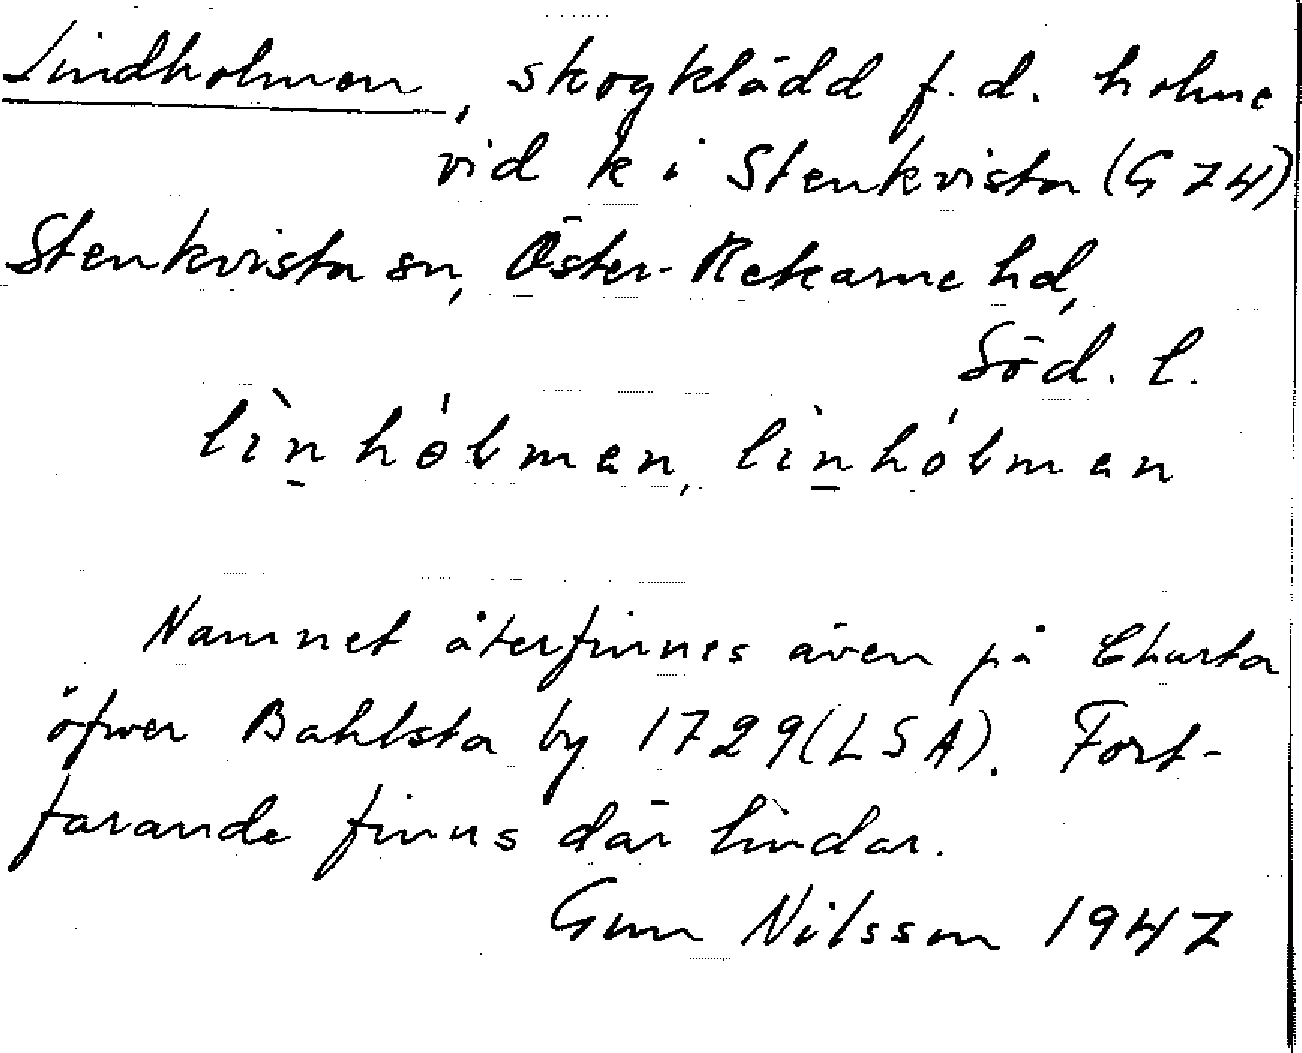 Lindholmen, skogklädd f.d. holme
vid k i Stenkvista (G 74)
Stenkvista sn, Öster-Rekarne hd,
Söd. l.
lìn̲hólmen, lìn̲hólmen
Namnet återfinnes även på Charta
öfwer Bahlsta by 1729(LSA). Fort-
farande finns där lindar.
Gun Nilsson 1947